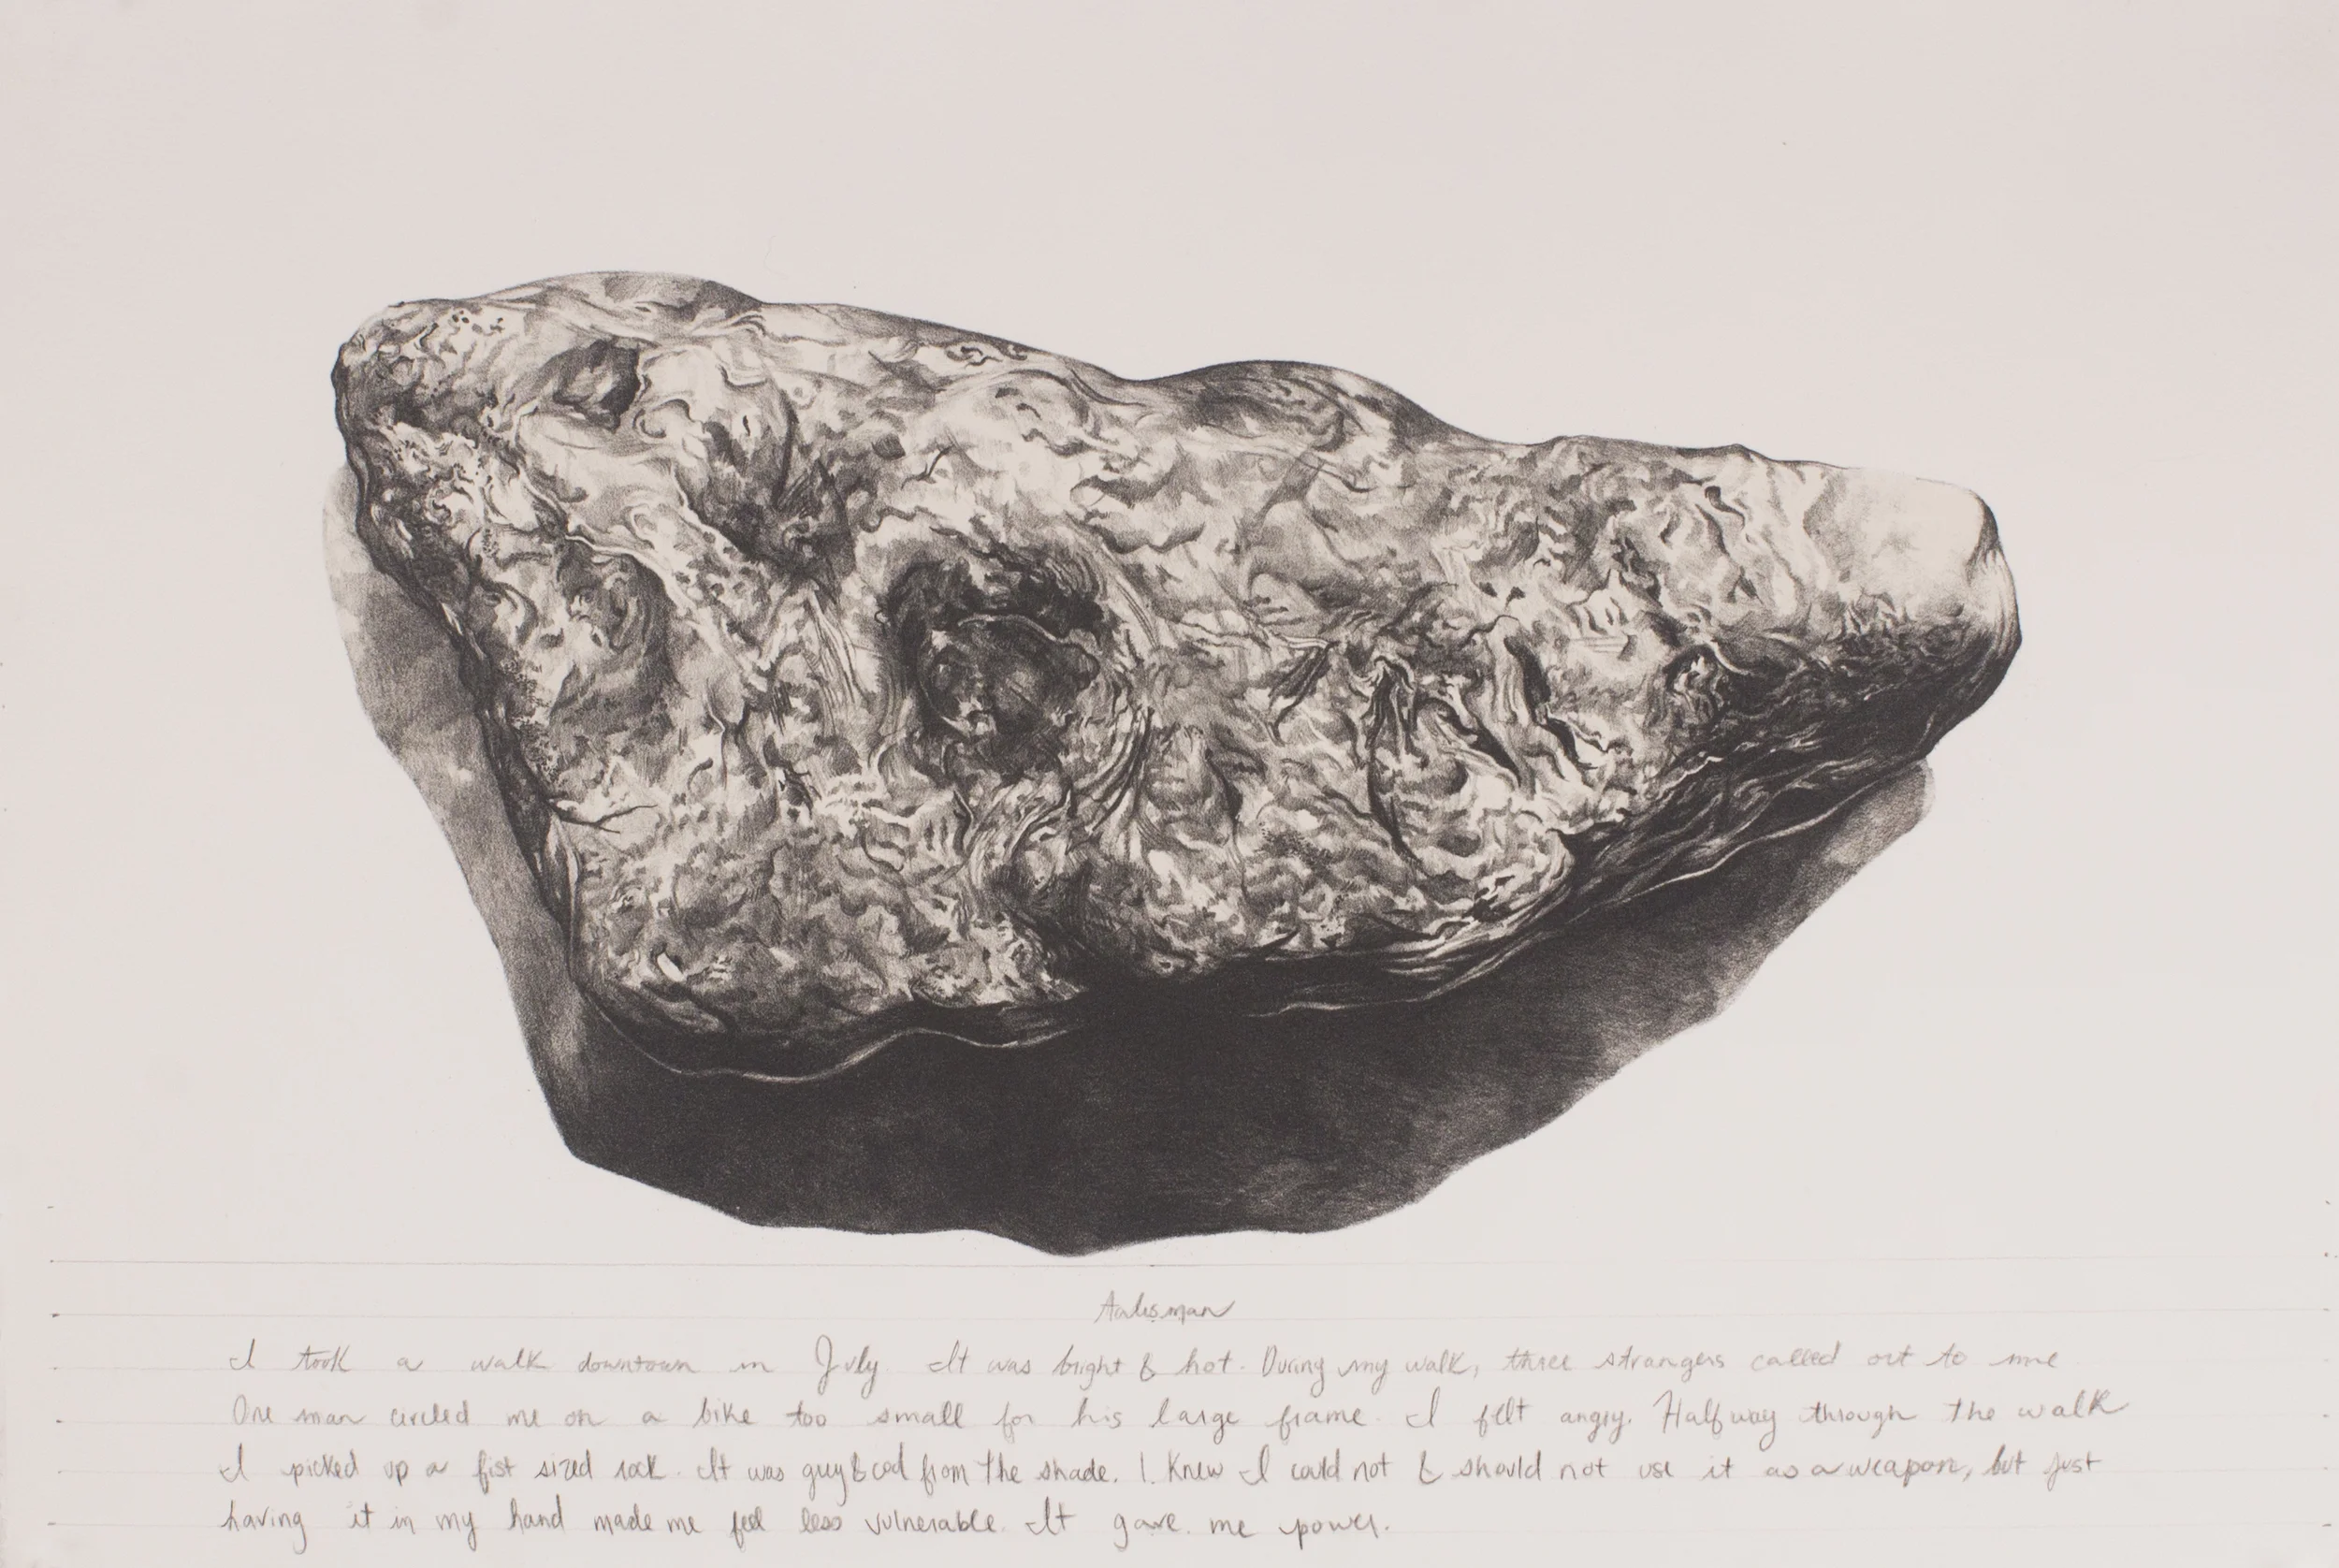 Talisman
I took a walk downtown in July. It was bright & hot. During my walk, three strangers called out to me
One man circled me on a bike too small for his large frame. I felt angry. Halfway through the walk
I picked up a fist sized rock. It was grey & cool from the shade. I knew I could not & should not use it as a weapon, but just
having it in my hand made me feel less vulnerable. It gave me power.